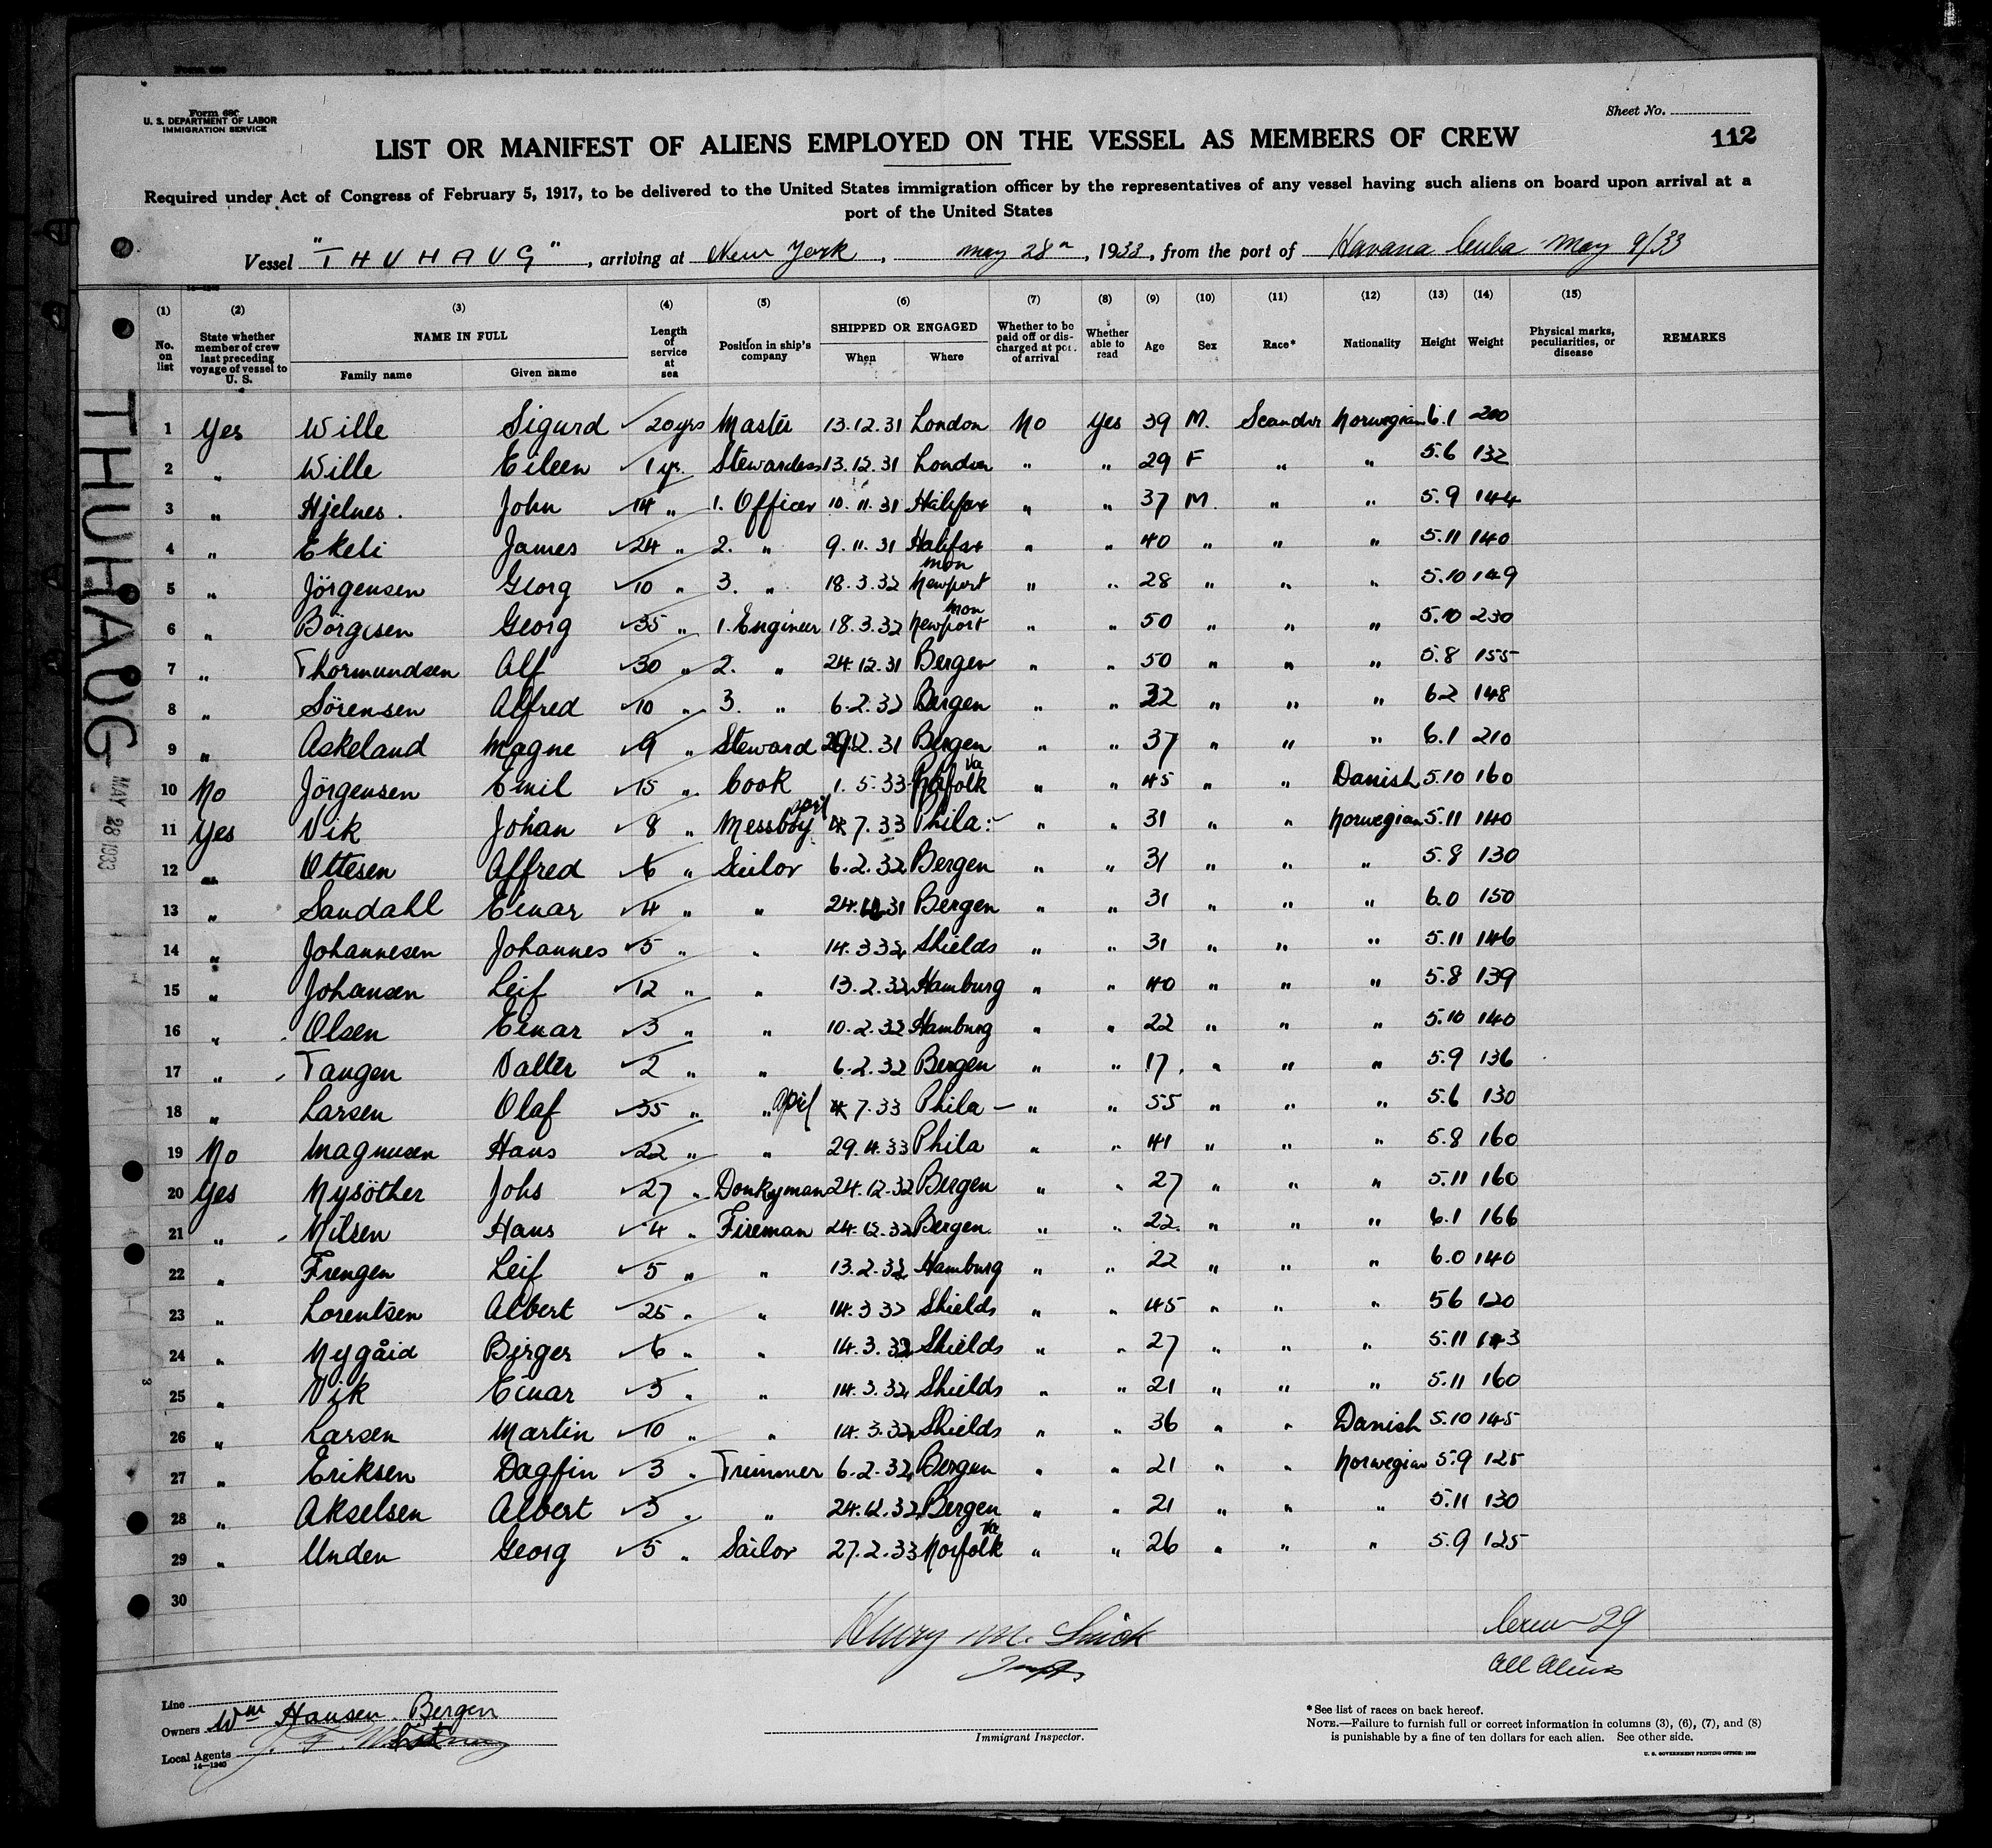 Form 680
U. S. DEPARTMENT OF LABOR
IMMIGRATION SERVICE
Sheet No.
112
LIST OR MANIFEST OF ALIENS EMPLOYED ON THE VESSEL AS MEMBERS OF CREW
Required under Act of Congress of February 5, 1917, to be delivered to the United States immigration officer by the representatives of any vessel having such aliens on board upon arrival at a
port of the United States
Vessel "THUHAUG", arriving at New York, May 28th, 1933, from the port of Havana Cuba May 9/33
(1) (2) (3) (4) (5) (6) (7) (8) (9) (10) (11) (12) (13) (14) (15)
No. on list State whether member of crew last preceding voyage of vessel to U. S. NAME IN FULL Family name Given name Length of service at sea Position in ship's company SHIPPED OR ENGAGED When Where Whether to be paid off or discharged at port of arrival Whether able to read Age Sex Race* Nationality Height Weight Physical marks, peculiarities, or disease REMARKS
1 Yes Wille Sigurd 20 yrs Master 13.12.31 London No Yes 39 M. Scandin Norwegian 6.1 200
2 " Wille Eileen 1 yr. Stewardess 13.12.31 London " " 29 F " " 5.6 132
3 " Hjelnes. John 14 " 1. Officer 10.11.31 Halifax " " 37 M. " " 5.9 144
4 " Ekeli James 24 " 2. " 9.11.31 Halifax " " 40 " " " 5.11 140
5 " Jörgensen Georg 10 " 3. " 18.3.32 Newport Mon " " 28 " " " 5.10 149
6 " Börgesen Georg 35 " 1. Engineer 18.3.32 Newport Mon " " 50 " " " 5.10 230
7 " Thormundsen Alf 30 " 2. " 24.12.31 Bergen " " 50 " " " 5.8 155
8 " Sörensen Alfred 10 " 3. " 6.2.32 Bergen " " 32 " " " 6.2 148
9 " Askeland Magne 9 " Steward 12.31 Bergen " " 37 " " " 6.1 210
10 No Jörgensen Emil 15 " Cook 1.5.33 Norfolk Va " " 45 " " Danish 5.10 160
11 Yes Vik Johan 8 " Messboy april 7.33 Phila: " " 31 " " Norwegian 5.11 140
12 " Ottesen Alfred 6 " Sailor 6.2.32 Bergen " " 31 " " " 5.8 130
13 " Sandahl Einar 4 " " 24.12.31 Bergen " " 31 " " " 6.0 150
14 " Johannesen Johannes 5 " " 14.3.32 Shields " " 31 " " " 5.11 146
15 " Johansen Leif 12 " " 13.2.32 Hamburg " " 40 " " " 5.8 139
16 " Olsen Einar 3 " " 10.2.32 Hamburg " " 22 " " " 5.10 140
17 " Tangen Valter 2 " " 6.2.32 Bergen " " 17 " " " 5.9 136
18 " Larsen Olaf 35 " " april 7.33 Phila — " " 55 " " " 5.6 130
19 No Magnusen Hans 22 " " 29.4.33 Phila " " 41 " " " 5.8 160
20 Yes Nysöther Johs 27 " Donkyman 24.12.32 Bergen " " 27 " " " 5.11 160
21 " Nilsen Hans 4 " Fireman 24.12.32 Bergen " " 22 " " " 6.1 166
22 " Frengen Leif 5 " " 13.2.32 Hamburg " " 22 " " " 6.0 140
23 " Lorentsen Albert 25 " " 14.3.32 Shields " " 45 " " " 56 120
24 " Nygård Birger 6 " " 14.3.32 Shields " " 27 " " " 5.11 143
25 " Vik Einar 3 " " 14.3.32 Shields " " 21 " " " 5.11 160
26 " Larsen Martin 10 " " 14.3.32 Shields " " 36 " " Danish 5.10 145
27 " Eriksen Dagfin 3 " Trimmer 6.2.32 Bergen " " 21 " " Norwegian 5.9 125
28 " Akselsen Albert 3 " " 24.12.32 Bergen " " 21 " " " 5.11 130
29 " Unden Georg 5 " Sailor 27.2.33 Norfolk Va " " 26 " " " 5.9 125
30
THUHAUG
MAY 28 1933
Henry M.
Crew 29
All Aliens
Line
Owners Wm Hansen. Bergen
Local Agents J. F. Whitney
14—1240
Immigrant Inspector.
* See list of races on back hereof.
NOTE.—Failure to furnish full or correct information in columns (3), (6), (7), and (8)
is punishable by a fine of ten dollars for each alien. See other side.
U. S. GOVERNMENT PRINTING OFFICE